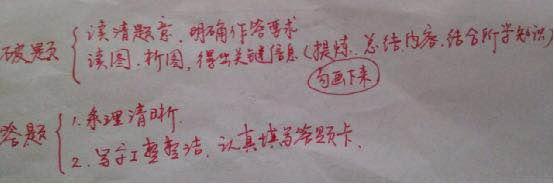 破题
读清题意,明确作答要求
读图.析图,得出关键信息(提炼.总结内容.结合所学知识)
勾画下来
答题
1.条理清晰.
2.写字工整整洁.认真填写答题卡.